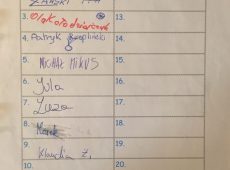 3.
4. Patryk
5. MICHAŁ MIKUS
6. Jula
7. Zuza
8.
9. Klaudia Ż.
10.
13.
14.
15.
16.
17.
18.
19.
20.